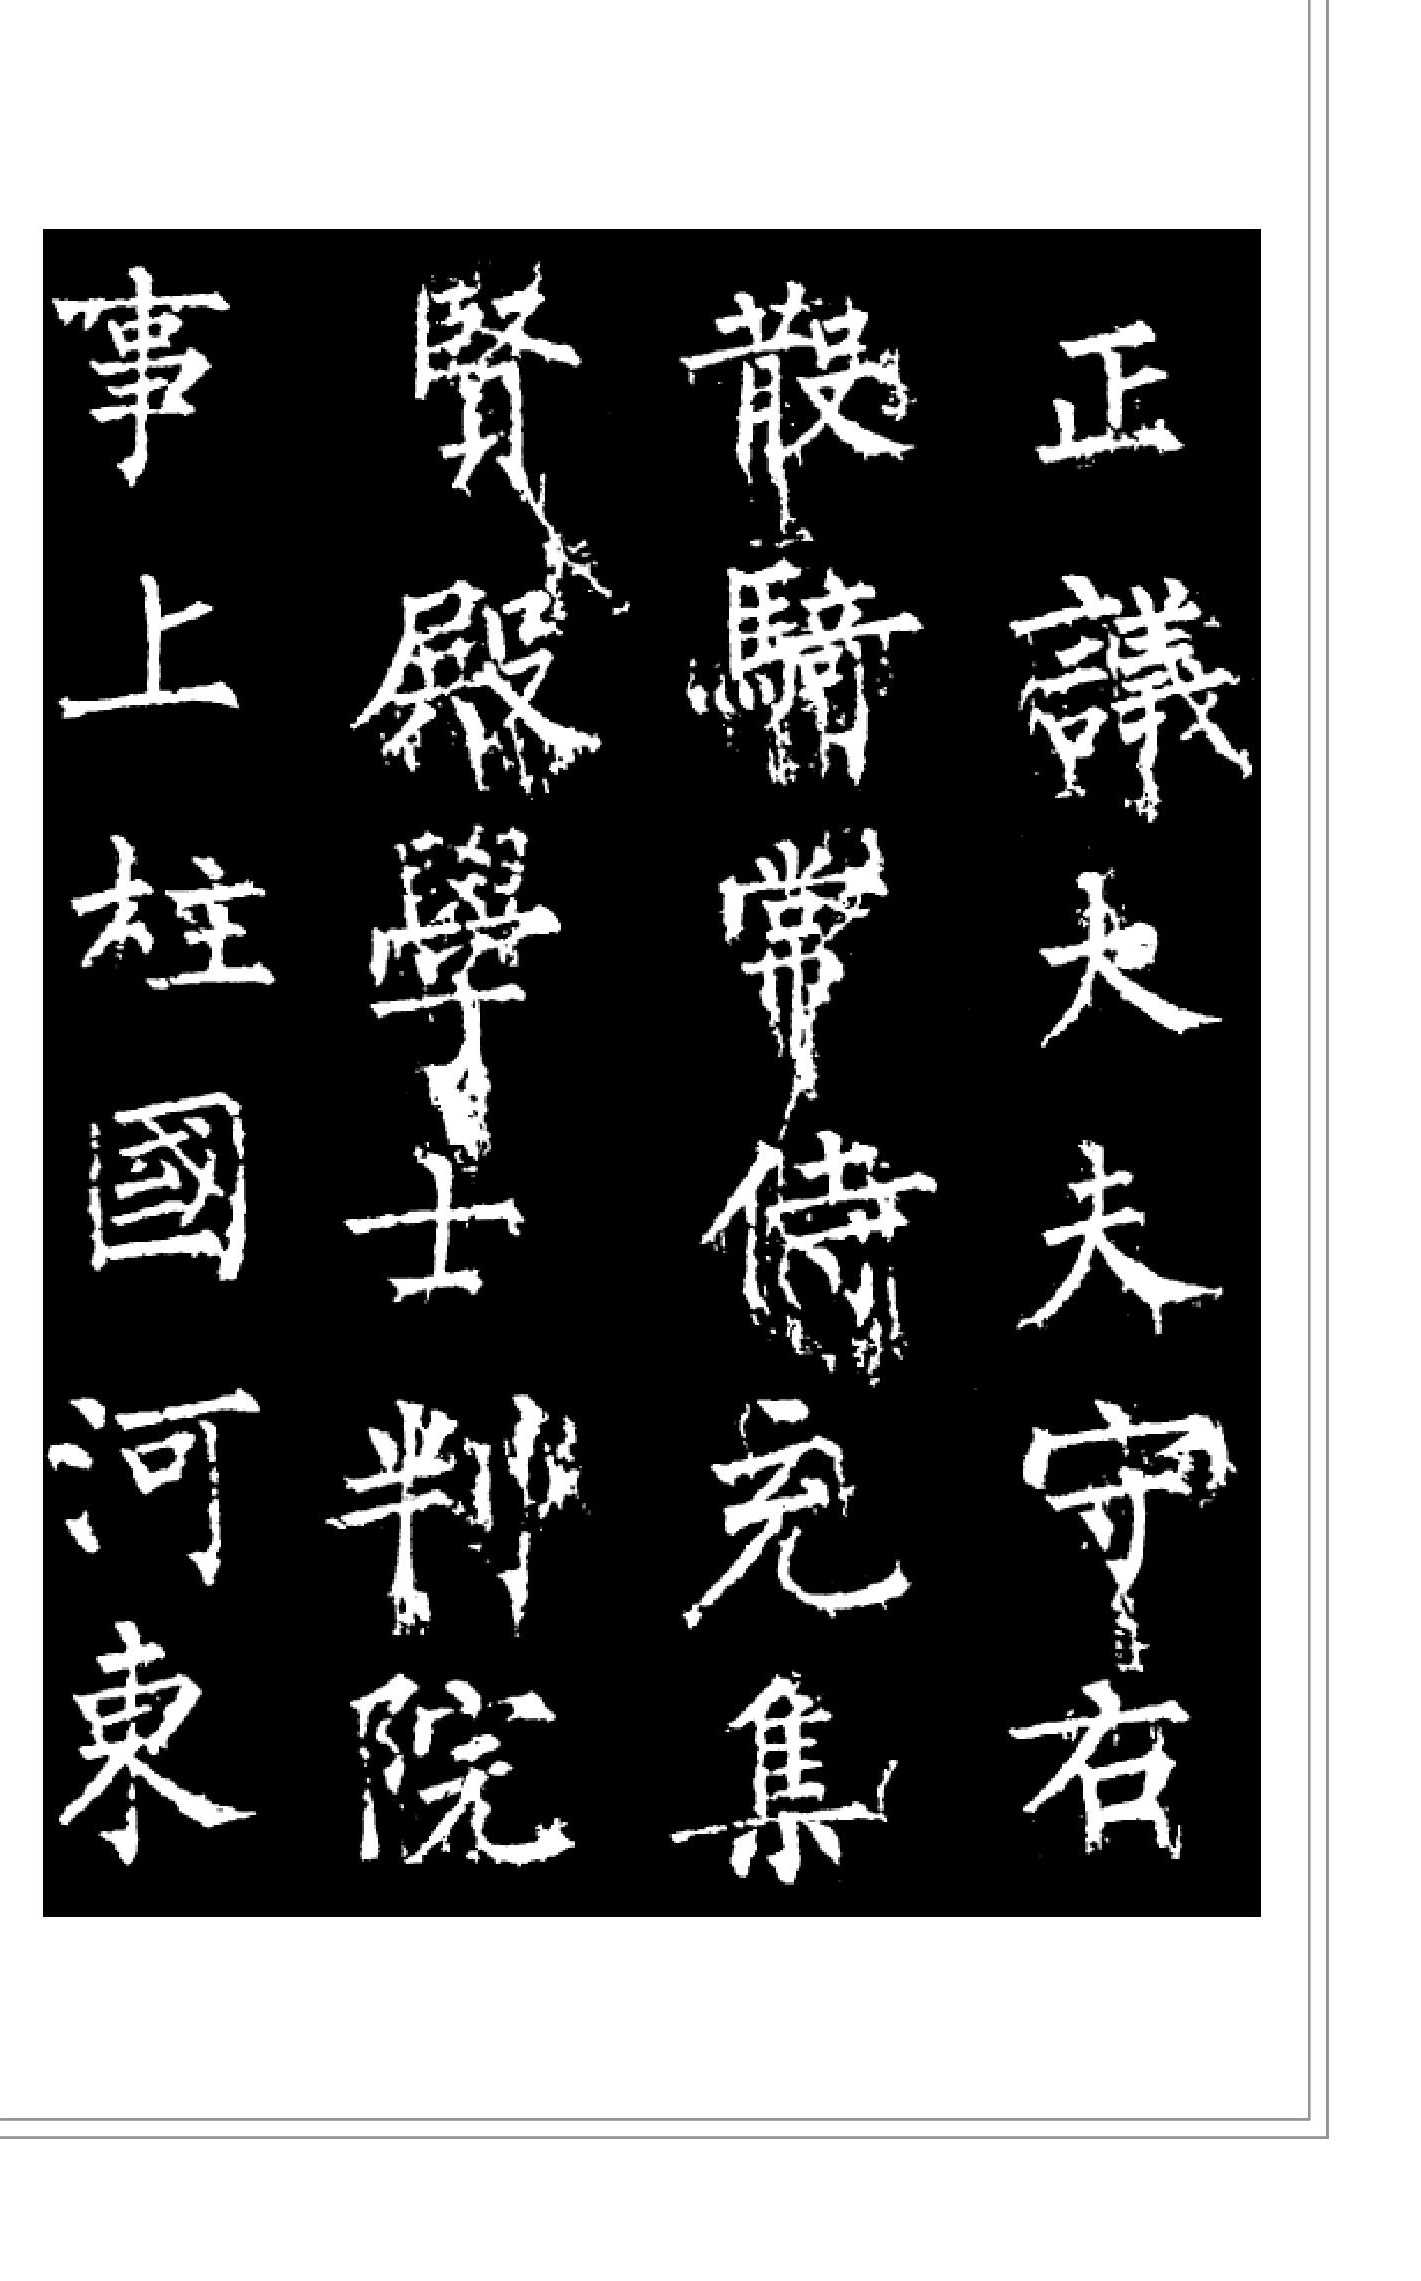 正議大夫守右
散騎常侍充集
賢殿學士判院
事上柱國河東